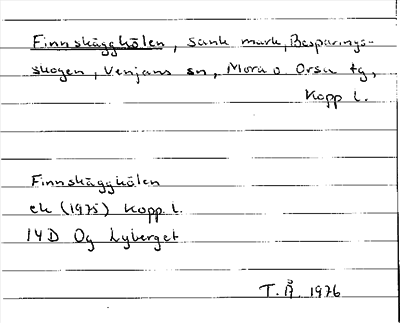 Finnskäggkölen, sank mark, Besparings-
skogen, Venjans sn, Mora o. Orsa tg,
Kopp l.
Finnskäggkölen
ek (1975) Kopp. l.
14D 0g Lyberget
T. Å. 1976